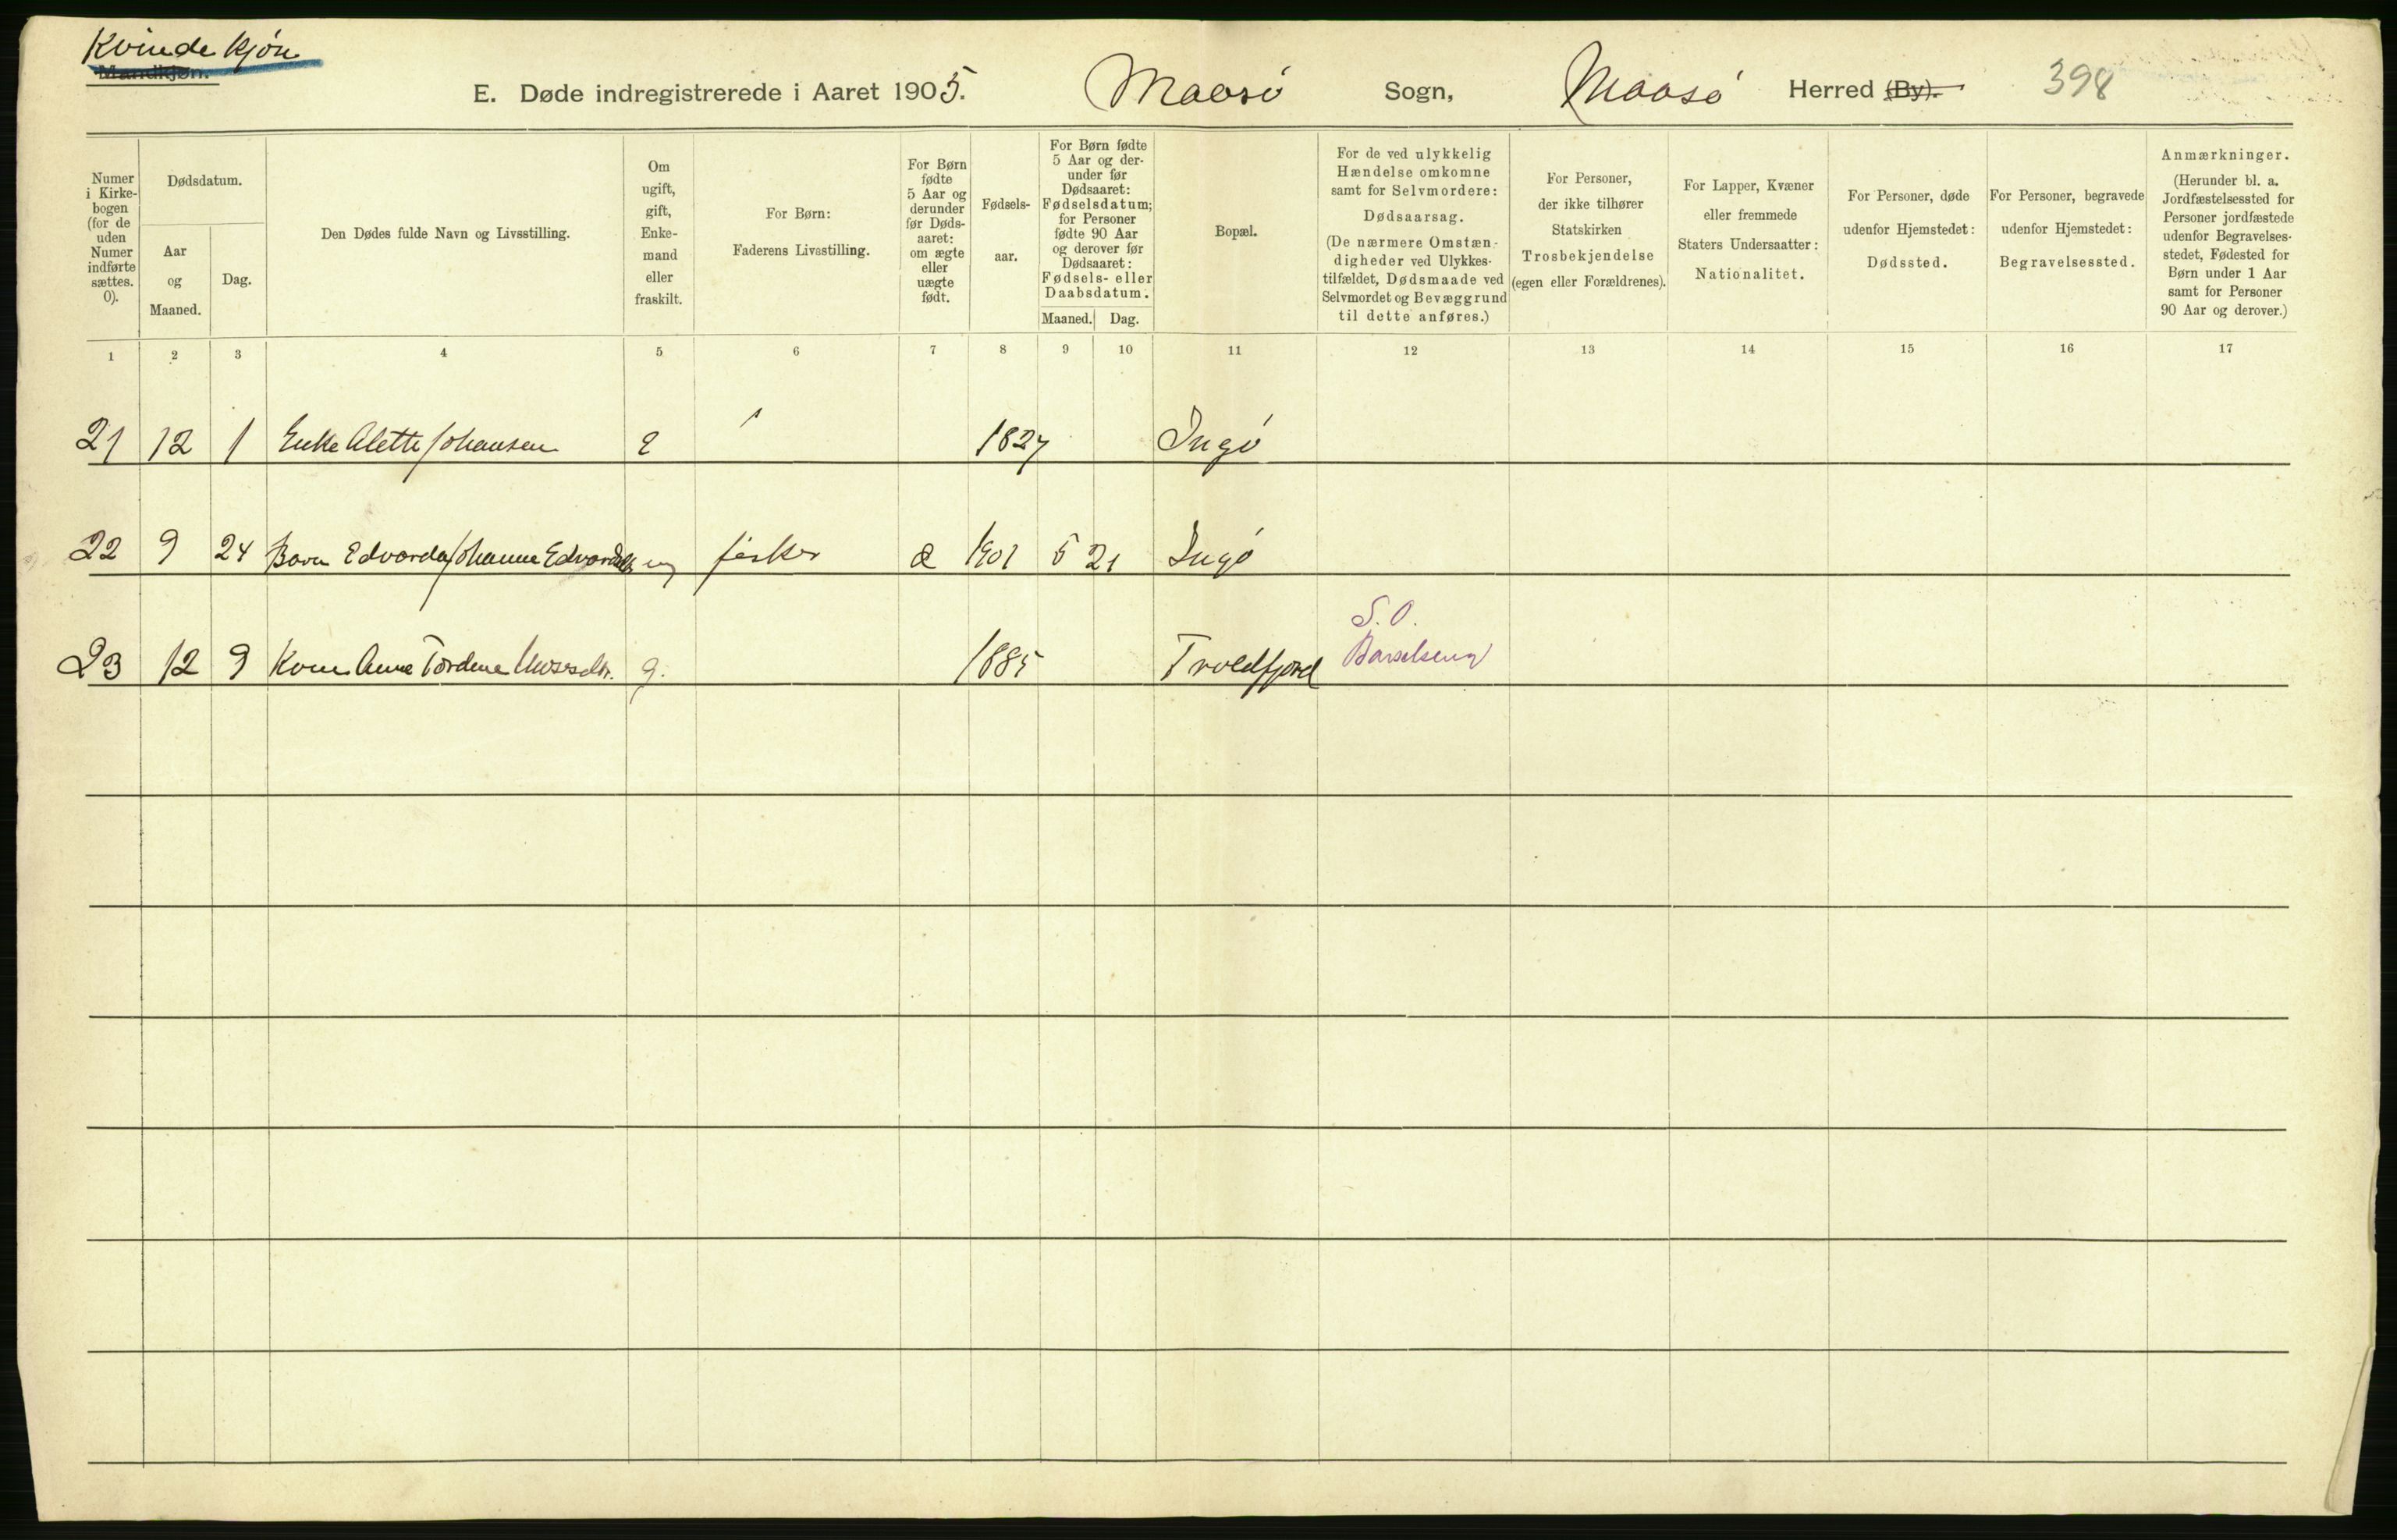 Kvindekjøn
Mandkjøn.
E. Døde indregistrerede i Aaret 1905. Maasø Sogn, Maasø Herred (By). 398
Numer i Kirke-bogen (for de uden Numer indførte sættes. 0).
Dødsdatum.
Aar og Maaned.
Dag.
Den Dødes fulde Navn og Livsstilling.
Om ugift, gift, Enke-mand eller fraskilt.
For Børn: Faderens Livsstilling.
For Børn fødte 5 Aar og derunder før Døds-aaret: om ægte eller uægte født.
Fødsels-aar.
For Børn fødte 5 Aar og der-under før Dødsaaret: Fødselsdatum; for Personer fødte 90 Aar og derover før Dødsaaret: Fødsels- eller Daabsdatum.
Maaned. Dag.
Bopæl.
For de ved ulykkelig Hændelse omkomne samt for Selvmordere: Dødsaarsag. (De nærmere Omstæn-digheder ved Ulykkes-tilfældet, Dødsmaade ved Selvmordet og Bevæggrund til dette anføres.)
For Personer, der ikke tilhører Statskirken Trosbekjendelse (egen eller Forældrenes).
For Lapper, Kvæner eller fremmede Staters Undersaatter: Nationalitet.
For Personer, døde udenfor Hjemstedet: Dødssted.
For Personer, begravede udenfor Hjemstedet: Begravelsessted.
Anmærkninger. (Herunder bl. a. Jordfæstelsessted for Personer jordfæstede udenfor Begravelses-stedet, Fødested for Børn under 1 Aar samt for Personer 90 Aar og derover.)
1 2 3 4 5 6 7 8 9 10 11 12 13 14 15 16 17
21 12 1 Enke Alette Johansen E 1827 Ingø
22 9 24 Barn Edvarda Johanne Edvardsdtr ug fisker æ 1901 5 21 Ingø
S. O.
23 12 9 Kone Anna Tordine g. 1885 Troldfjord Barselseng